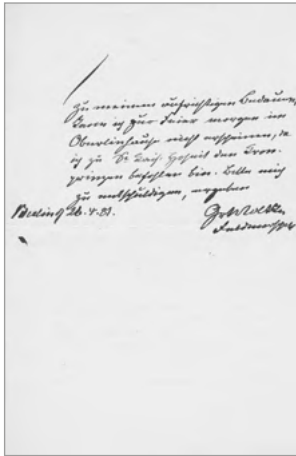 Zu meinem aufrichtigen Bedauern
kann ich zur Feier morgen im
Oberlinhause nicht erscheinen, da
ich zu Sr Kais. Hoheit dem Kron-
prinzen befohlen bin. Bitte mich
zu entschuldigen, ergeben
Berlin 26.4.81.
GrMoltke
Feldmarschall